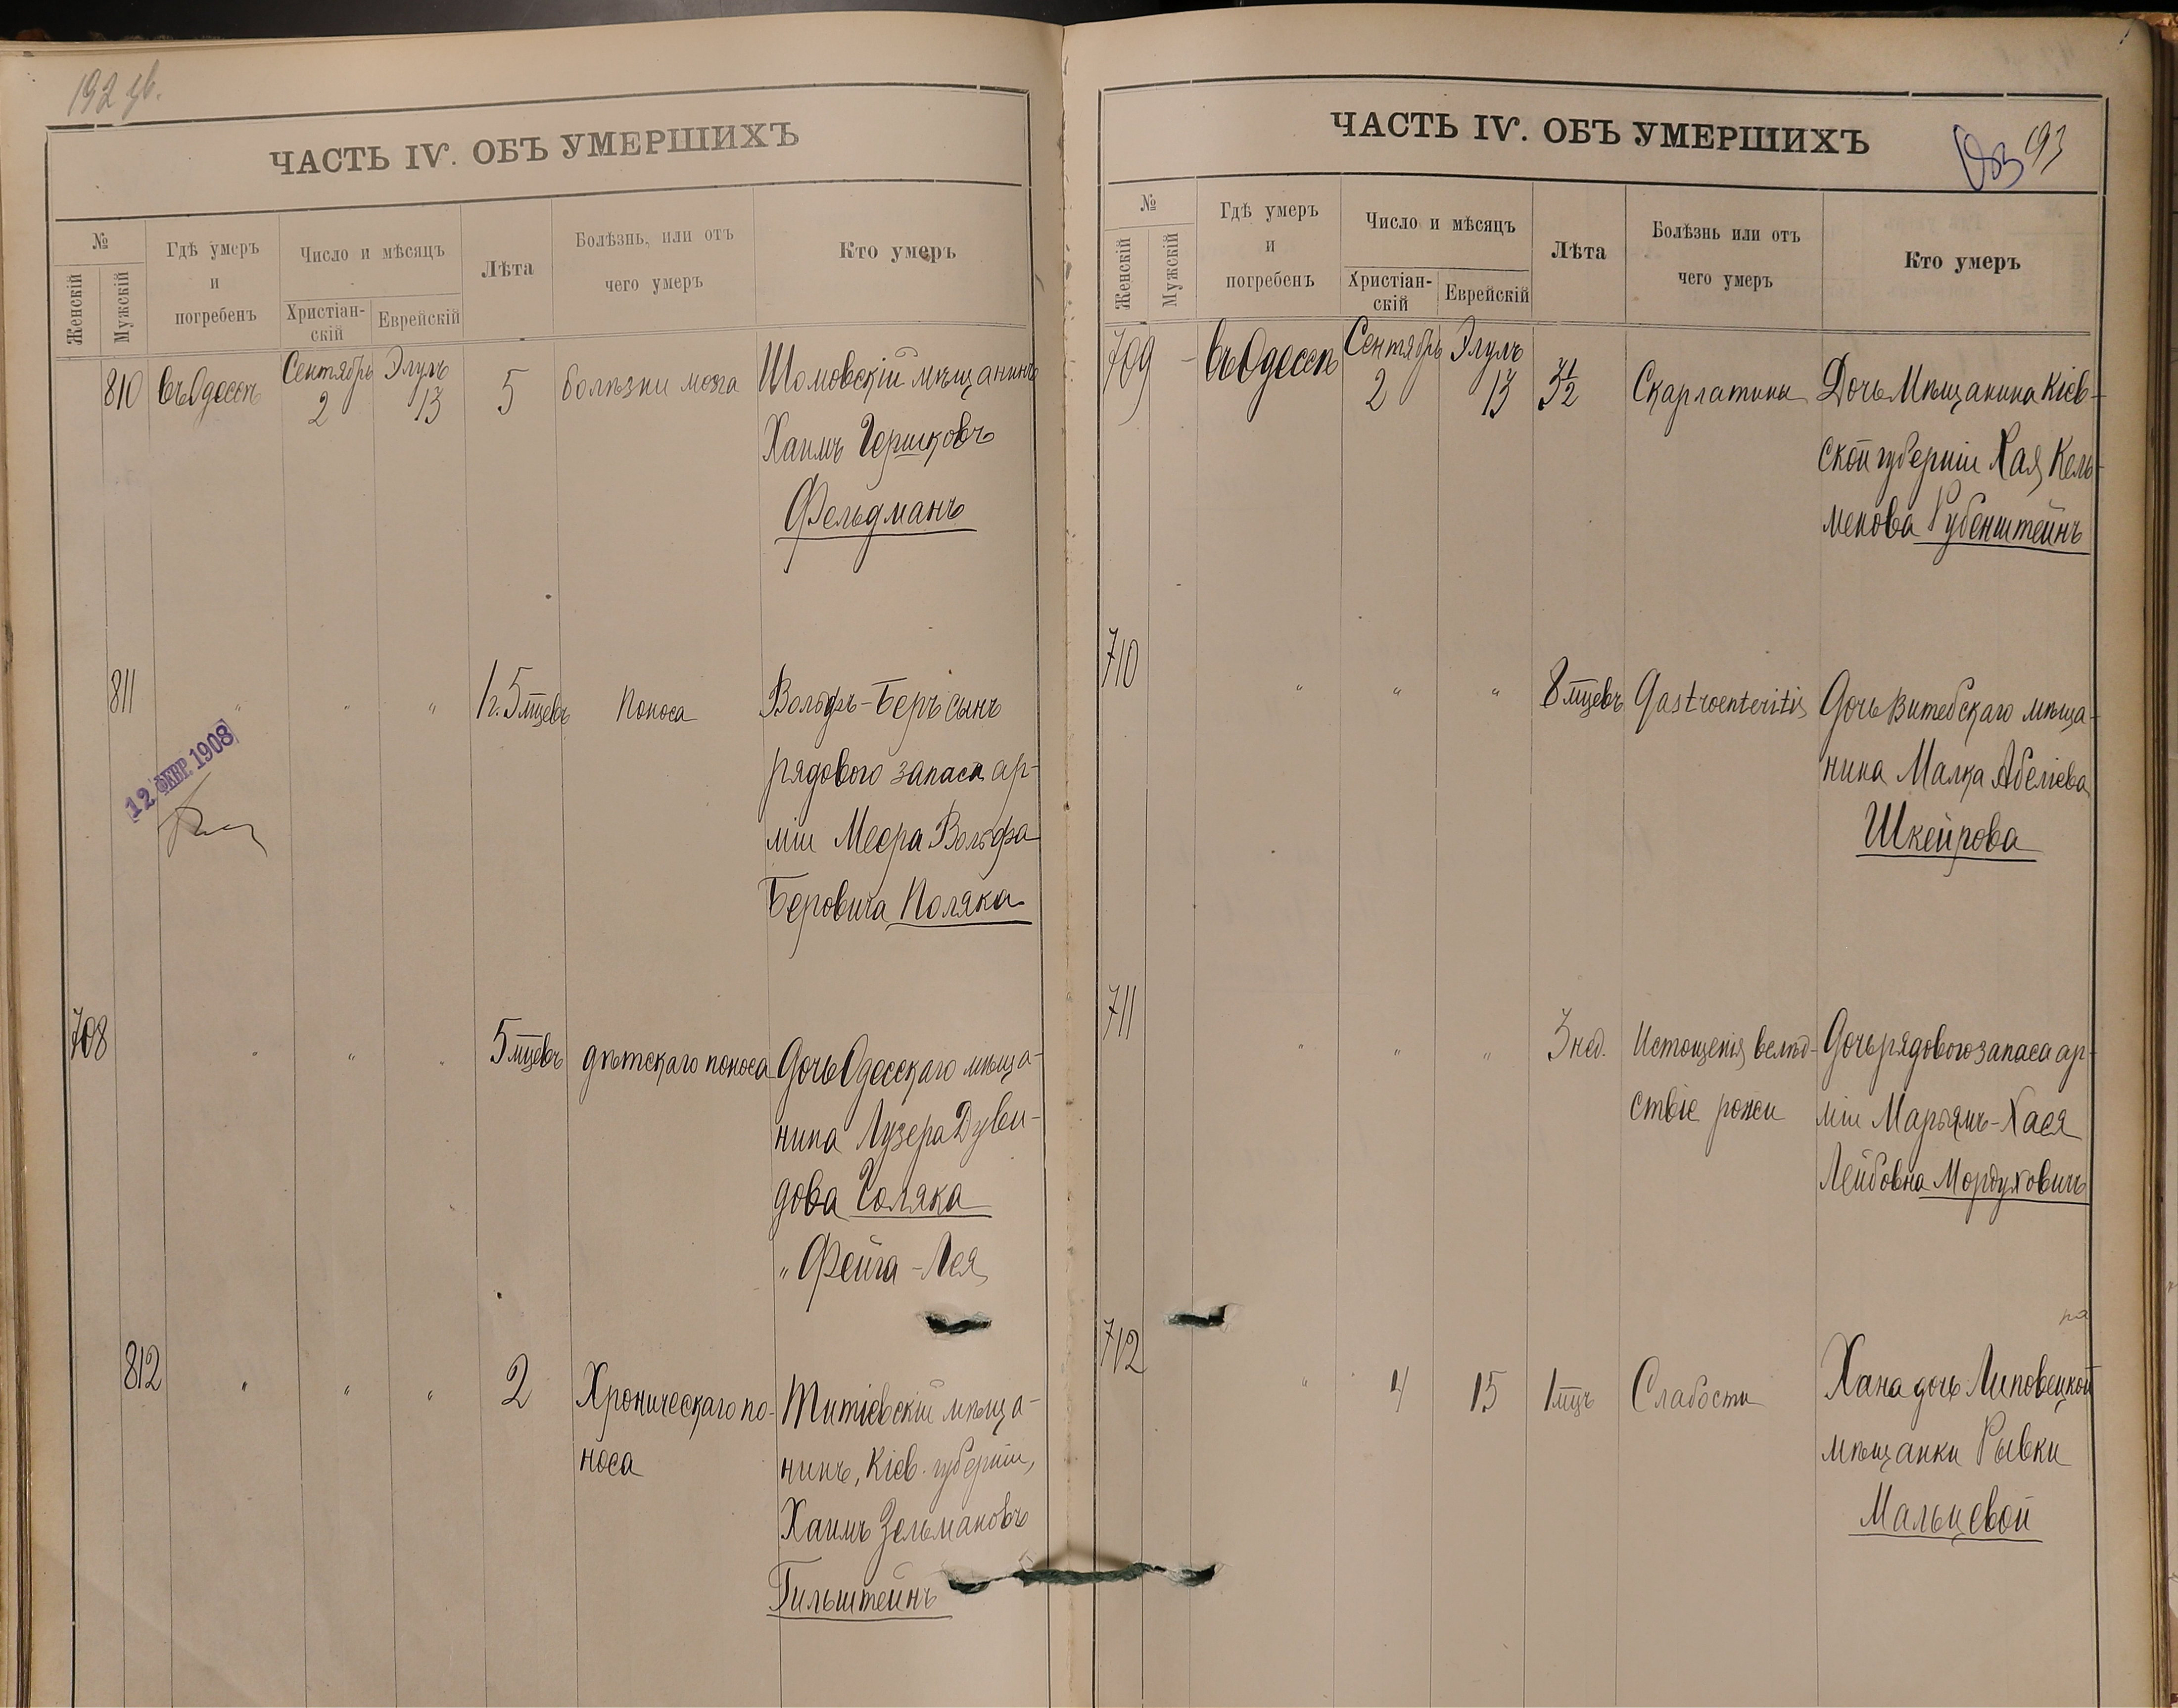 ЧАСТЬ IV. ОБЪ УМЕРШИХЪ
№
Женскій
Мужскій
Гдѣ умеръ
и
погребенъ
Число и мѣсяцъ
Христіан-
скій
Еврейскій
Лѣта
Болѣзнь, или отъ
чего умеръ
Кто умеръ
810 въ Одессѣ Сентябрь 2 Элулъ 13 5 болѣзни мозга мѣщанинъ
Хаимъ Гершковъ
Фельдманъ
811 " " " 1 г. 5 мцевъ Поноса Вольфъ-Беръ сынъ
рядового запаса ар-
міи Меера Вольфа
Беровича Поляка
12 ФЕВР. 1908
708 " " " 5 мцевъ дѣтскаго поноса Дочь Одесскаго мѣща-
нина Лузера Дуви-
дова Голяка
" Фейга-Лея
812 " " " 2 Хроническаго по- мѣща-
носа нинъ, Кіев. губерніи,
Хаимъ Зельмановъ
Гильштейнъ
ЧАСТЬ IV. ОБЪ УМЕРШИХЪ
193
№
Женскій
Мужскій
Гдѣ умеръ
и
погребенъ
Число и мѣсяцъ
Христіан-
скій
Еврейскій
Лѣта
Болѣзнь или отъ
чего умеръ
Кто умеръ
709 въ Одессѣ Сентябрь 2 Элулъ 13 3½ Скарлатины Дочь Мѣщанина Кіев-
ской губерніи Хая Кель-
менова Рубенштейнъ
710 " " " 8 мцевъ Gastroenteritis Дочь Витебскаго мѣща-
нина Малка Абелева
Шкейрова
711 " " " 3 нед. Истощенія вслѣд- Дочь рядового запаса ар-
ствіе рожи міи Марьямъ-Хася
Лейбовна Мордуховичъ
712 " 4 15 1 мцъ Слабости Хана дочь Липовецкой
мѣщанки Рывки
Мальцевой